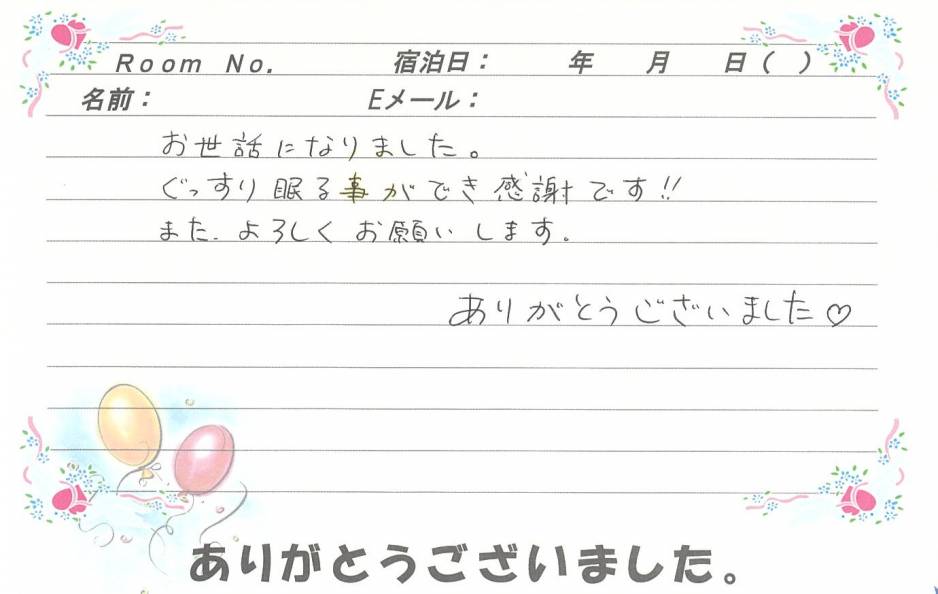 Room No. 宿泊日： 年 月 日( )
名前： Eメール：
お世話になりました。
ぐっすり眠る事ができ感謝です!!
また、よろしくお願いします。
ありがとうございました♡
ありがとうございました。